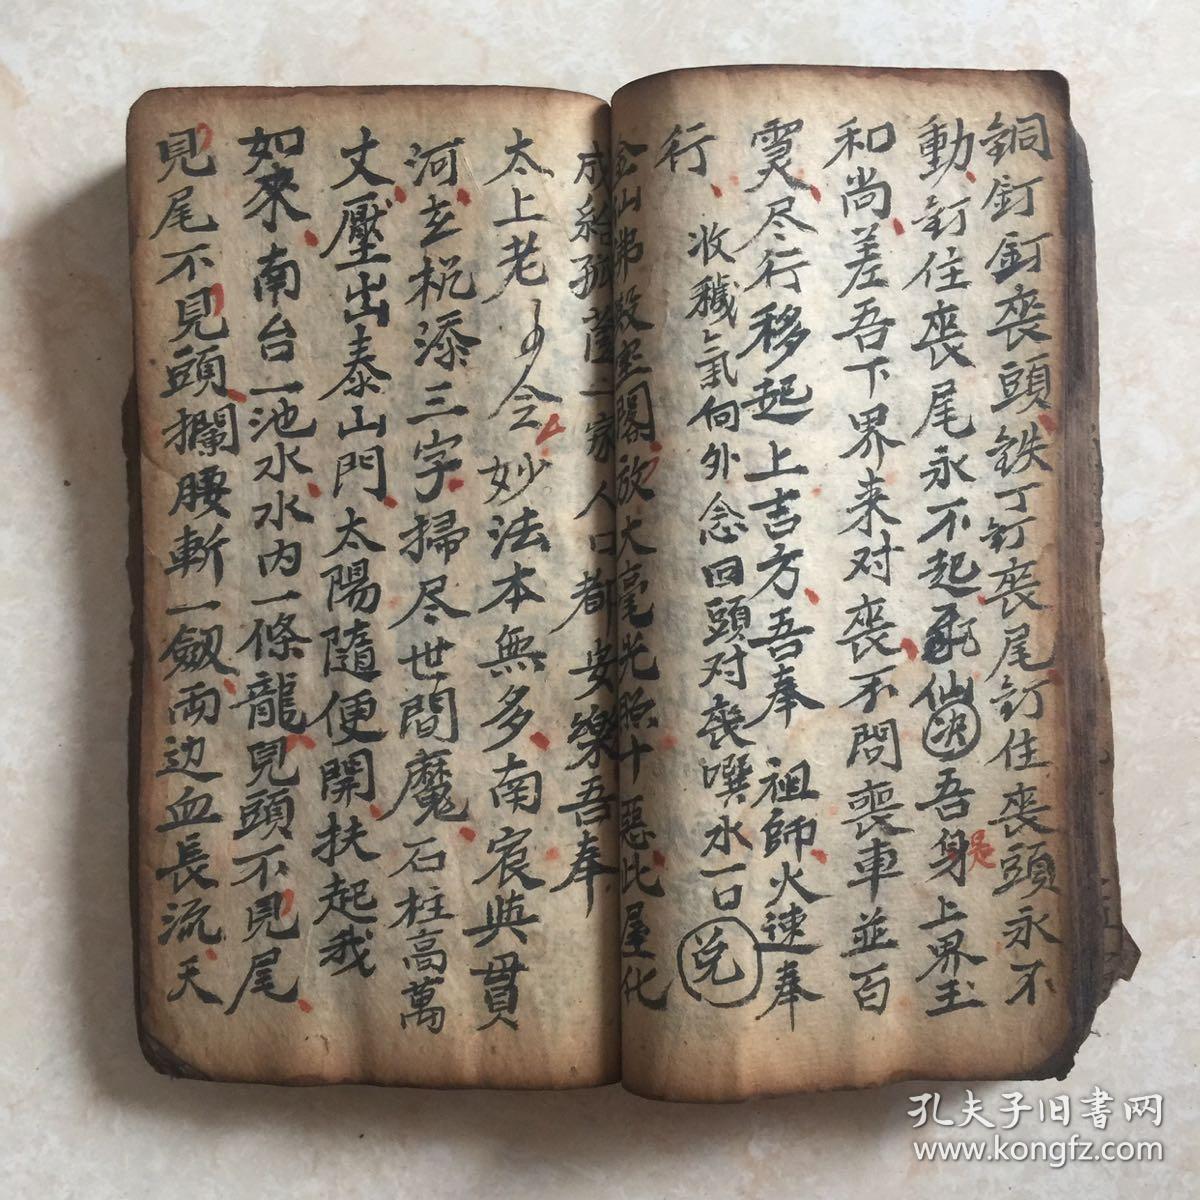 銅釘釘喪頭鉄丁釘喪尾釘住喪頭永不
動釘住喪尾永不起 仙 吾身上界玉
是
和尚差吾下界来对喪不問喪車並百
尽行移起上吉方吾奉祖師火速奉
行
收穢氣向外念回頭对喪噀水一口兑
金山佛殿 閣放大毫光照十惡比屋化
成 一家人口都安樂吾奉
太上老 令妙法本無多南宸與貫
河玄 添三字掃尽世間魔石柱高萬
丈壓出泰山門太陽隨便開扶起我
如來南台一池水水内一條龍見頭不見尾
見尾不見頭攔腰斬一劔両边血長流天
孔夫子旧書网
www.kongfz.com